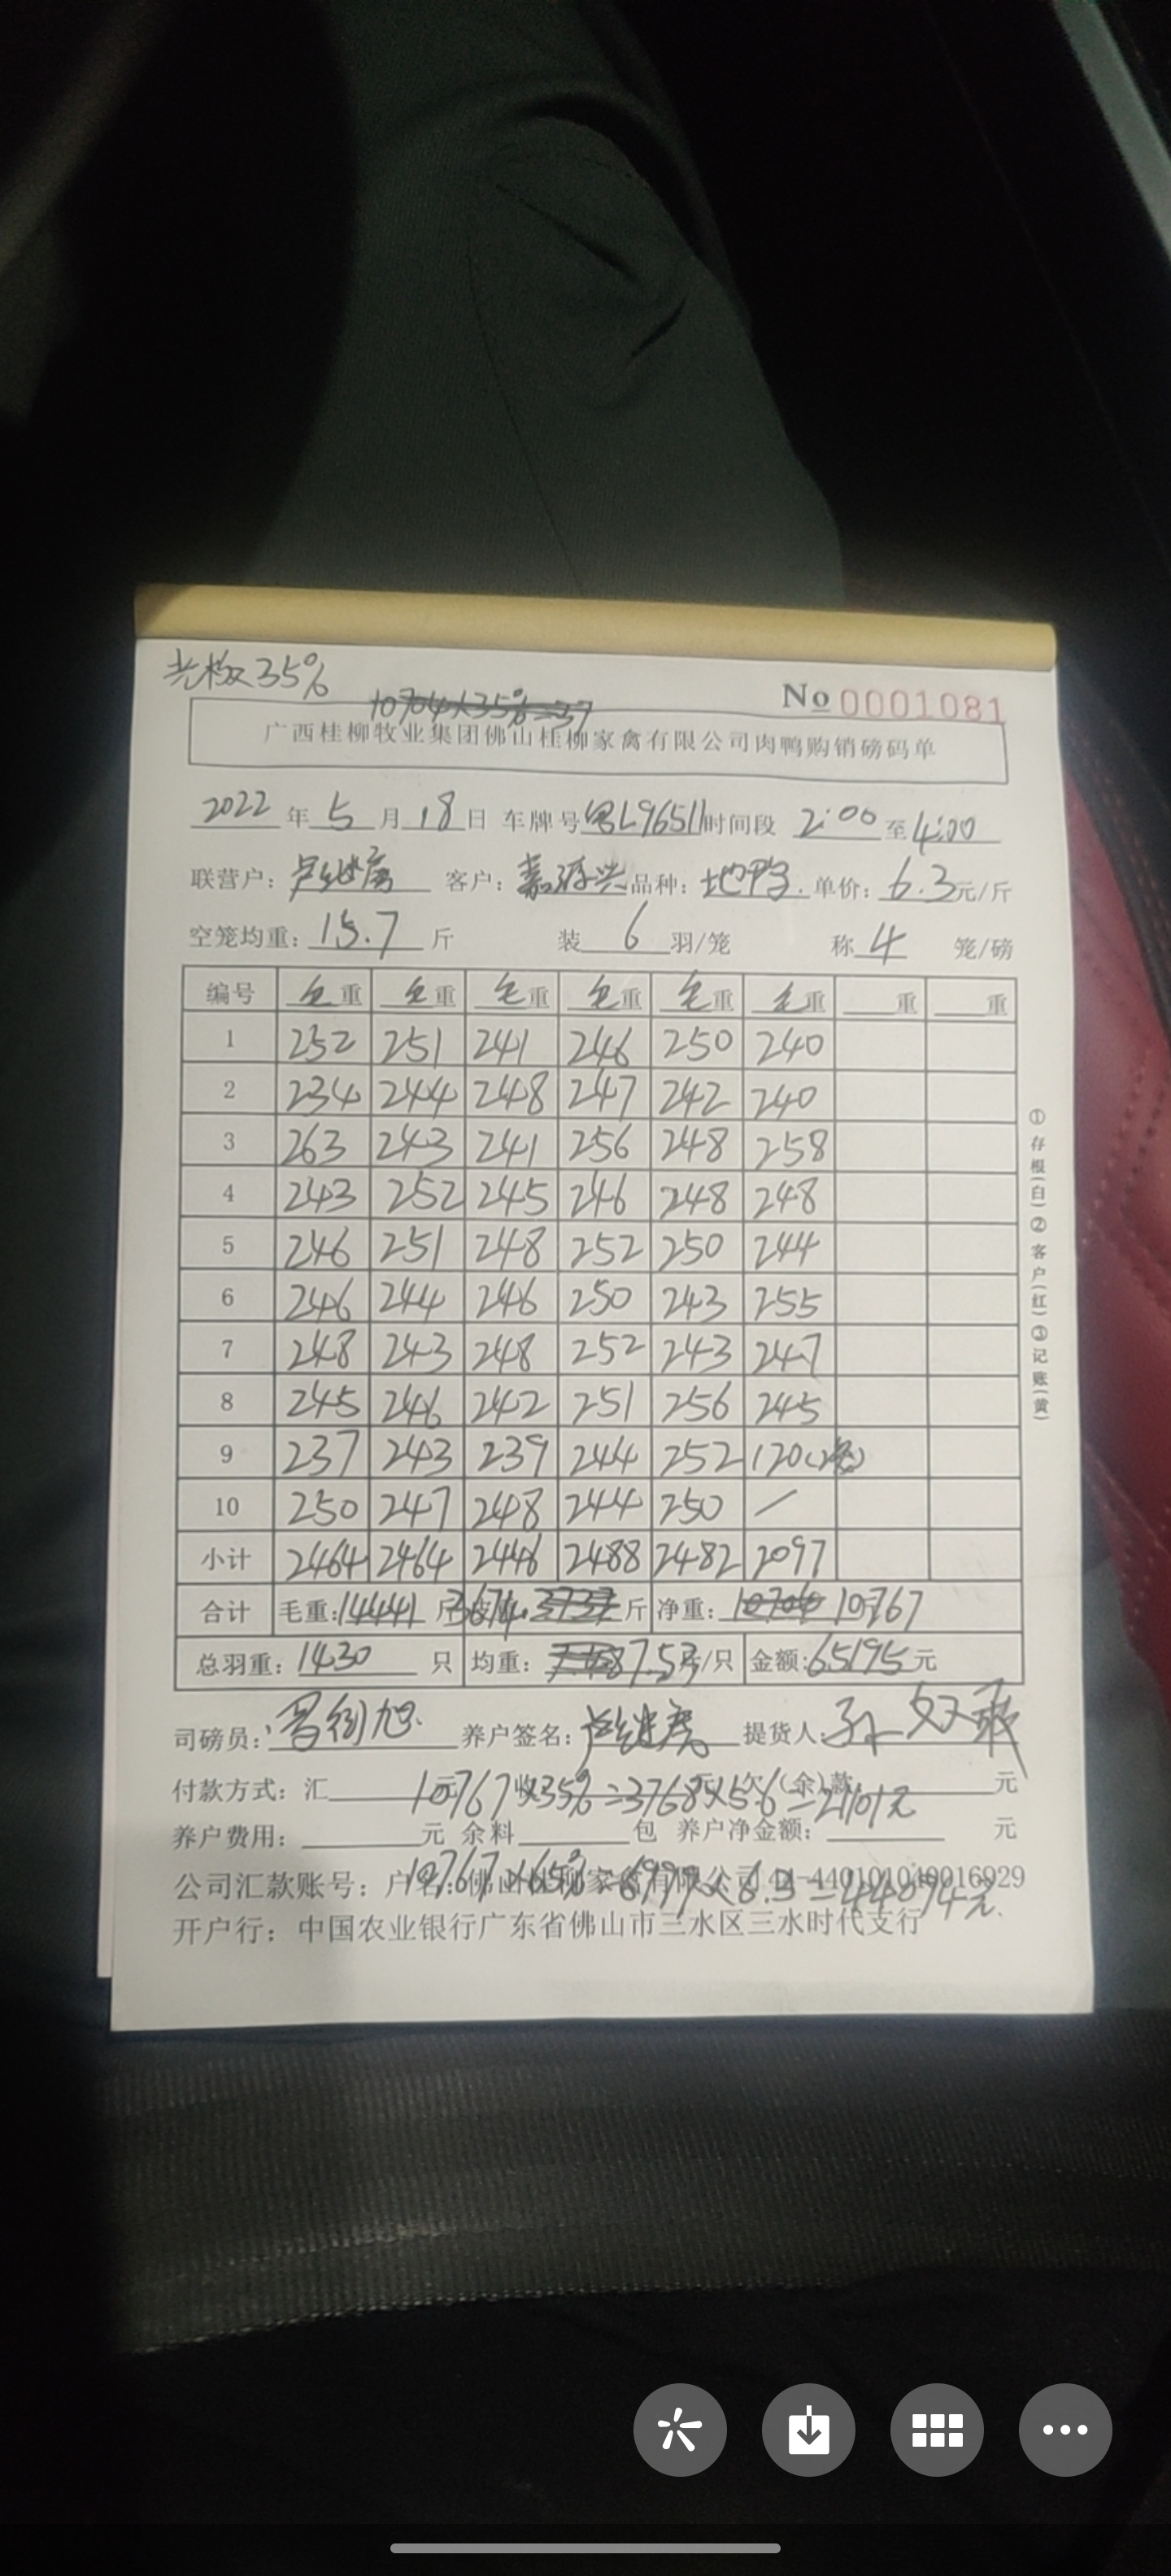 光板35%
No 0001081
10704×35%=37
广西桂柳牧业集团佛山桂柳家禽有限公司肉鸭购销磅码单
2022 年 5 月 18 日 车牌号 粤L96511 时间段 2:00 至 4:00
联营户: 卢继 客户: 嘉源兴 品种: 地鸭 单价: 6.3 元/斤
空笼均重: 15.7 斤 装 6 羽/笼 称 4 笼/磅
编号 毛重 毛重 毛重 毛重 毛重 毛重 重 重
1 252 251 241 246 250 240
2 234 244 248 247 242 240
3 263 243 241 256 248 258
4 243 252 245 246 248 248
5 246 251 248 252 250 244
6 246 244 246 250 243 255
7 248 243 248 252 243 247
8 245 246 242 251 256 245
9 237 243 239 244 252 120(2笼)
10 250 247 248 244 250 /
小计 2464 2464 2446 2488 2482 2097
合计 毛重: 14441 斤 皮 3674 3737 斤 净重: 10704 10767
总羽重: 1430 只 均重: 7.53 斤/只 金额: 65195 元
司磅员: 养户签名: 卢继 提货人: 孙
付款方式: 汇 元 收 元 欠(余)款 元
10767×35%=3768×5.6=21101元
养户费用: 元 余料 包 养户净金额: 元
公司汇款账号: 户名: 佛山桂柳家禽有限公司 44-440101040016929
10767×65%=6999×6.3=44094元.
开户行: 中国农业银行广东省佛山市三水区三水时代支行
①存根(白)②客户(红)③记账(黄)